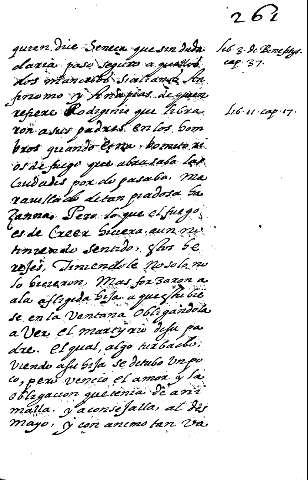 261
quien dice Seneca que sin duda
daria paso seguro a aquellos
dos mancebos sicilianos An
finomo y Anapias de quien
refiere Rodiginio que libra
ron a sus padres en los hom
bros quando Etna vomito ri
os de fuego que abrasaba las
Ciudades por do pasaba. Ma
ravillado de tan piadosa ha
zanna. Pero lo que el fuego
es de Creer hiciera, aun no
tiniendo sentido, los he
rejes, Teniendole No solo no
lo hicieron, Mas forzaron a
la afligida hija a que estubie
se en la Ventana Obligandola
a Ver el martyrio de su pa
dre. El qual, algo turbado,
viendo a su hija se detubo un po
co, pero vencio el amor y la
obligacion que tenia de ani
malla, y aconsejalla, al des
mayo, y con animo tan va
lib. 3. de Benefizijs.
cap. 37.
Lib. 11. cap. 17.